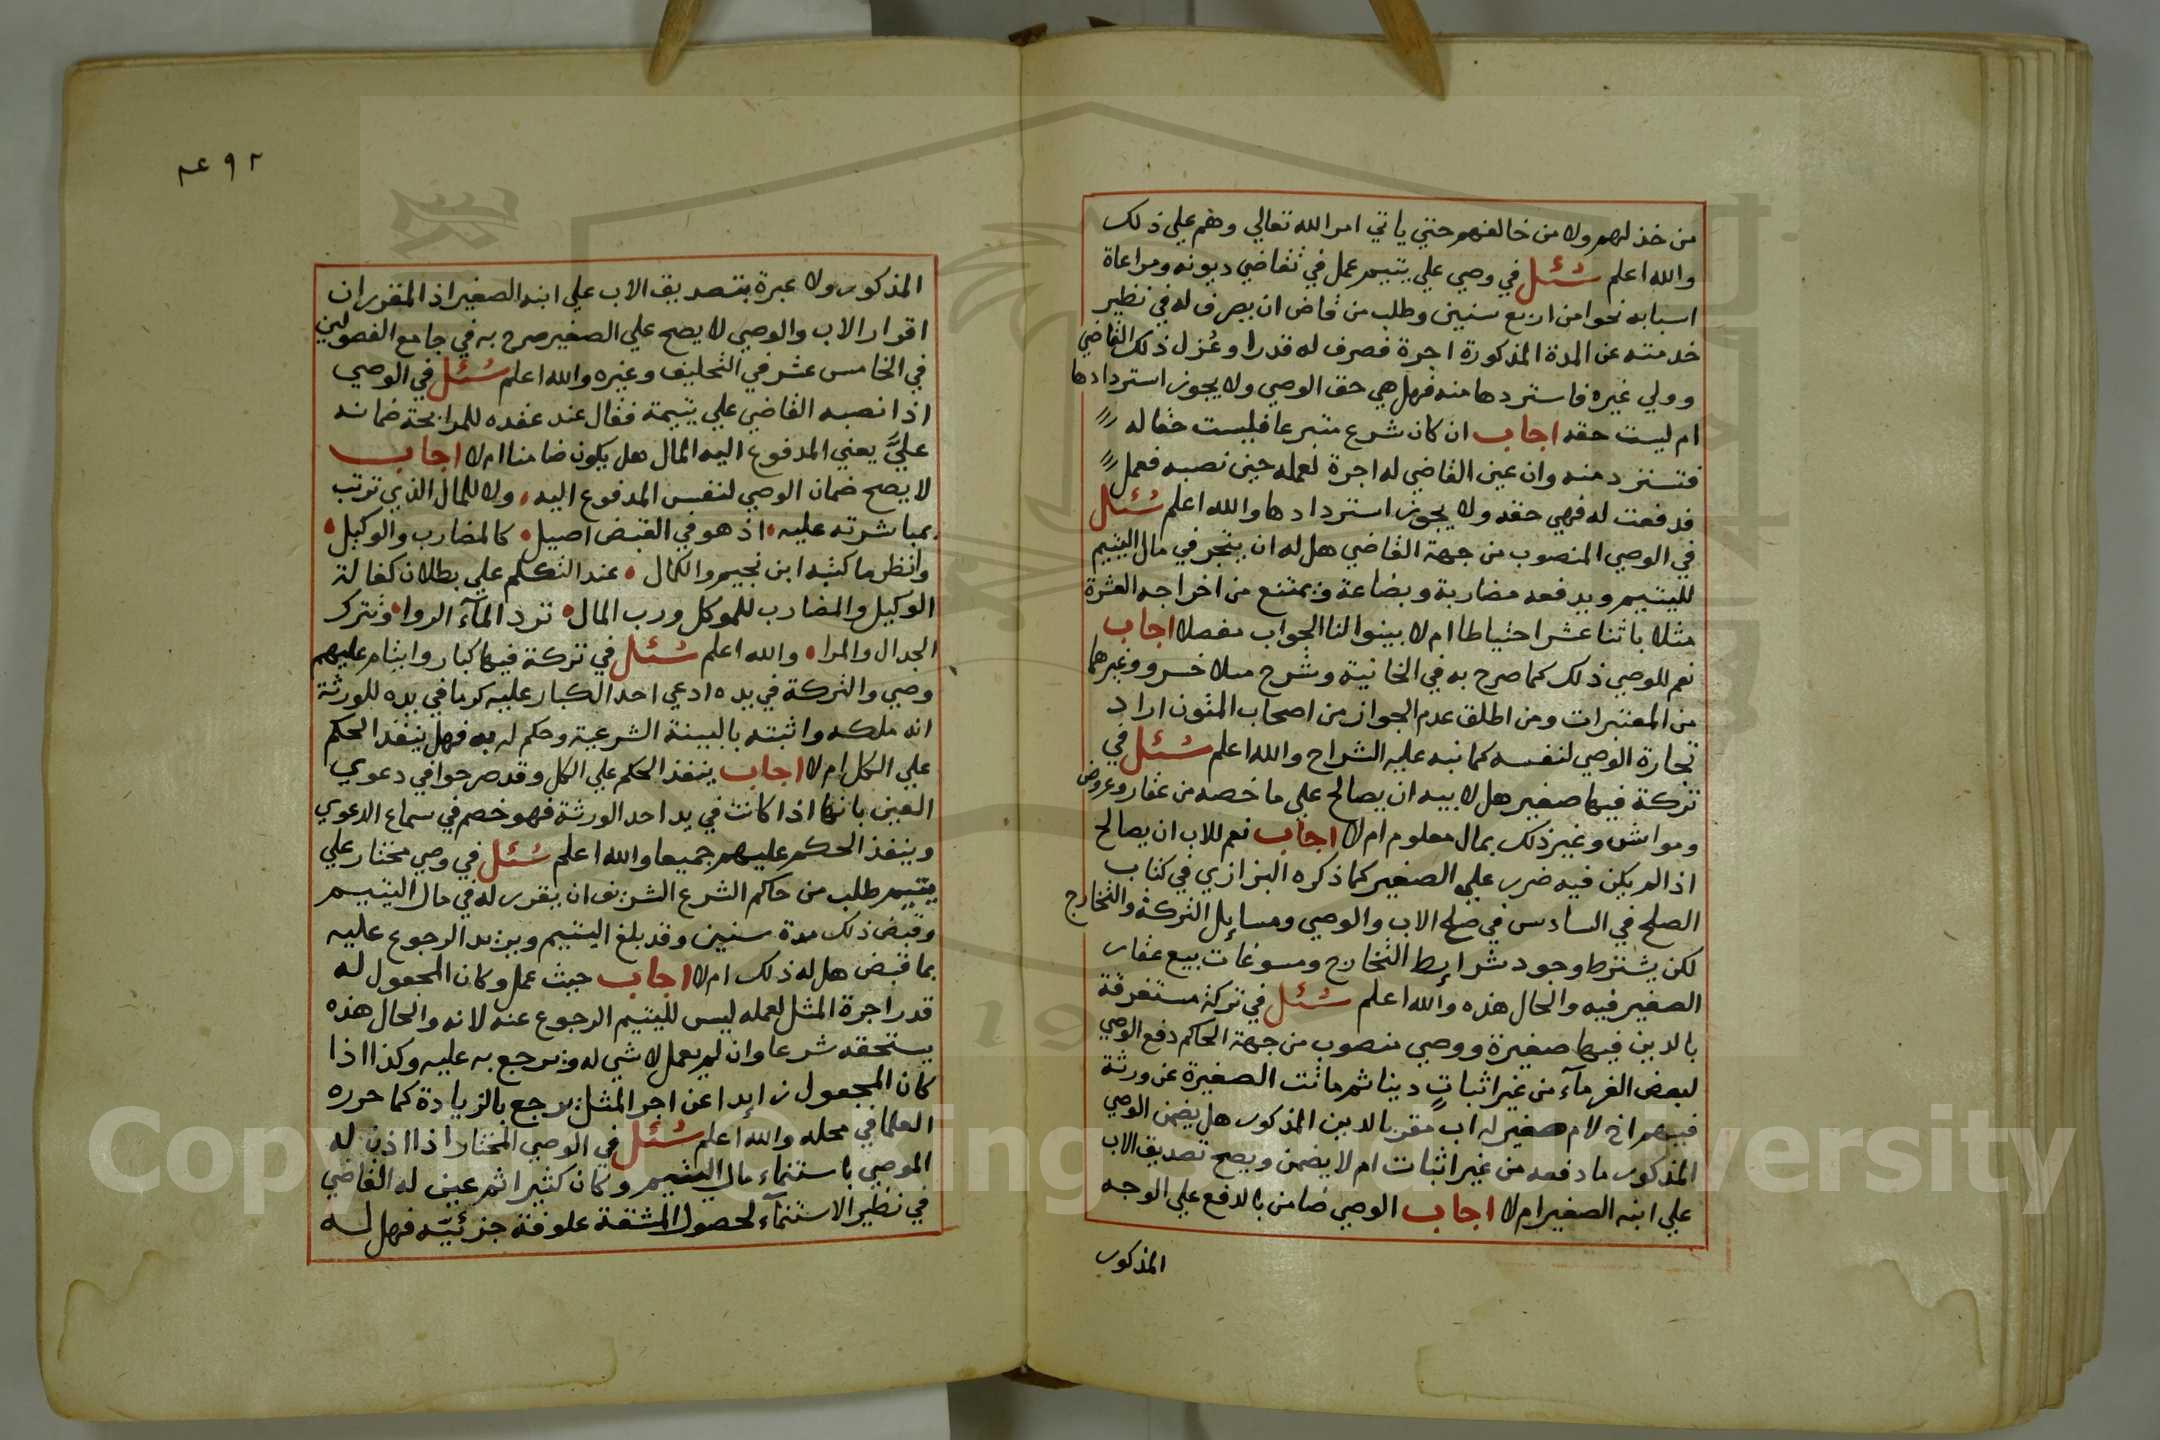 من خذلهم ولا من خالفهم حتي ياتي امر الله تعالي وهم علي ذلك
والله اعلم سُئل في وصي علي يتيم عمل في تقاضي ديونه ومراعاة
اسبابه نحوا من اربع سنين وطلب من قاض ان يصرف له في نظير
خدمته عن المدة المذكورة اجرة فصرف له قدرا وعُزل ذلك القاضي
وولي غيره فاستردها منه فهل هي حق الوصي ولا يجوز استردادها
ام ليست حقه اجاب ان كان شرع متبرعا فليست حقا له
فتسترد منه وان عين القاضي له اجرة لعمله حين نصبه فعمل
فدفعت له فهي حقه ولا يجوز استردادها والله اعلم سُئل
في الوصي المنصوب من جهة القاضي هل له ان يتجر في مال اليتيم
لليتيم ويدفعه مضاربة وبضاعة ويمتنع من اخراجه العشرة
مثلا باثنا عشر احتياطا ام لا بينوا لنا الجواب مفصلا اجاب
نعم للوصي ذلك كما صرح به في الخانية وشرح منلا خسرو وغيرهما
من المعتبرات ومن اطلق عدم الجواز من اصحاب المتون اراد
تجارة الوصي لنفسه كما نبه عليه الشراح والله اعلم سُئل في
تركة فيها صغير هل لابيه ان يصالح علي ما خصه من عقار وعروض
ومواش وغير ذلك بمال معلوم ام لا اجاب نعم للاب ان يصالح
اذا لم يكن فيه ضرر علي الصغير كما ذكره البزازي في كتاب
الصلح في السادس في صلح الاب والوصي ومسايل التركة والتخارج
لكن يشترط وجود شرايط التخارج ومسوغات بيع عقار
الصغير فيه والحال هذه والله اعلم سُئل في تركة مستغرقة
بالدين فيها صغيرة ووصي منصوب من جهة الحاكم دفع الوصي
لبعض الغرمآء من غير اثباتٍ دينا ثم ماتت الصغيرة عن ورثة
فيهم اخ لام صغير له اب مقر بالدين المذكور هل يضمن الوصي
المذكور ما دفعه من غير اثبات ام لا يضمن ويصح تصديق الاب
علي ابنه الصغير ام لا اجاب الوصي ضامن بالدفع علي الوجه
المذكور
٤٩٢
المذكور ولا عبرة بتصديق الاب علي ابنه الصغير اذ المقرر ان
اقرار الاب والوصي لا يصح علي الصغير صرح به في جامع الفصولين
في الخامس عشر في التحليف وغيره والله اعلم سُئل في الوصي
اذا نصبه القاضي علي يتيمة فقال عند عقده للمرابحة ضمانه
عليَّ يعني المدفوع اليه المال هل يكون ضامنا ام لا اجاب
لا يصح ضمان الوصي لنفس المدفوع اليه ولا للمال الذي ترتب
بمباشرته عليه اذ هو في القبض اصيل كالمضارب والوكيل
وانظر ما كتبه ابن نجيم والكمال عند التكلم علي بطلان كفالة
الوكيل والمضارب للموكل ورب المال ترد المآء الروا وتترك
الجدال والمرا والله اعلم سُئل في تركة فيها كبار وايتام عليهم
وصي والتركة في يده ادعي احد الكبار عليه كرما في يده للورثة
انه ملكه واثبته بالبينة الشرعية وحكم له به فهل ينفذ الحكم
علي الكل ام لا اجاب ينفذ الحكم علي الكل وقد صرحوا في دعوي
العين بانها اذا كانت في يد احد الورثة فهو خصم في سماع الدعوي
وينفذ الحكم عليهم جميعا والله اعلم سُئل في وصي مختار علي
يتيم طلب من حاكم الشرع الشريف ان يقرر له في مال اليتيم
وقبض ذلك مدة سنين وقد بلغ اليتيم ويريد الرجوع عليه
بما قبض هل له ذلك ام لا اجاب حيث عمل وكان المجعول له
قدر اجرة المثل لعمله ليس لليتيم الرجوع عنه لانه والحال هذه
يستحقه شرعا وان لم يعمل لا شي له ويرجع به عليه وكذا اذا
كان المجعول زايدا عن اجر المثل يرجع بالزيادة كما حرره
العلما في محله والله اعلم سُئل في الوصي المختار اذا اذن له
الموصي باستنماء مال اليتيم وكان كثيرا ثم عين له القاضي
في نظير الاستنمآء لحصول المشقة علوفة جزئيّة فهل له